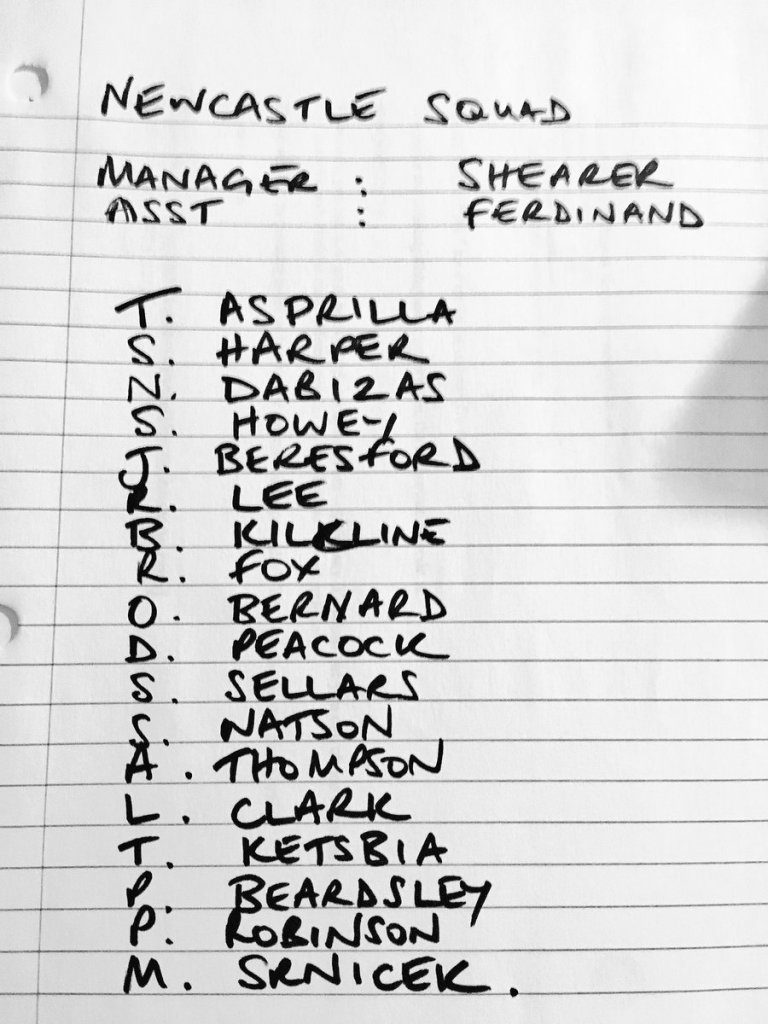 NEWCASTLE SQUAD
MANAGER : SHEARER
ASST : FERDINAND
T. ASPRILLA
S. HARPER
N. DABIZAS
S. HOWEY
J. BERESFORD
R. LEE
B. KILKLINE
R. FOX
O. BERNARD
D. PEACOCK
S. SELLARS
S. WATSON
A. THOMPSON
L. CLARK
T. KETSBIA
P. BEARDSLEY
P. ROBINSON
M. SRNICEK.